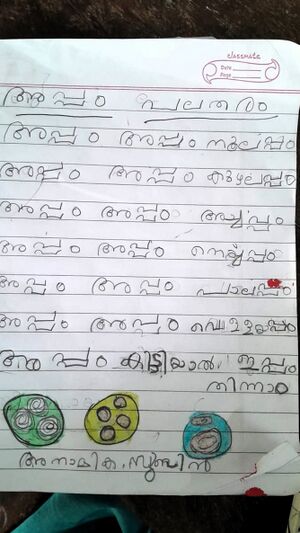 classmate
Date
Page
അപ്പം പലതരം
അപ്പം അപ്പം നൂലപ്പം
അപ്പം അപ്പം കുഴലപ്പം
അപ്പം അപ്പം അച്ചപ്പം
അപ്പം അപ്പം നെയ്യപ്പം
അപ്പം അപ്പം പാലപ്പം
അപ്പം അപ്പം വെള്ളയപ്പം
അപ്പം കിട്ടിയാൽ ഇപ്പം
തിന്നാം
അനാമിക. സുബിൻ